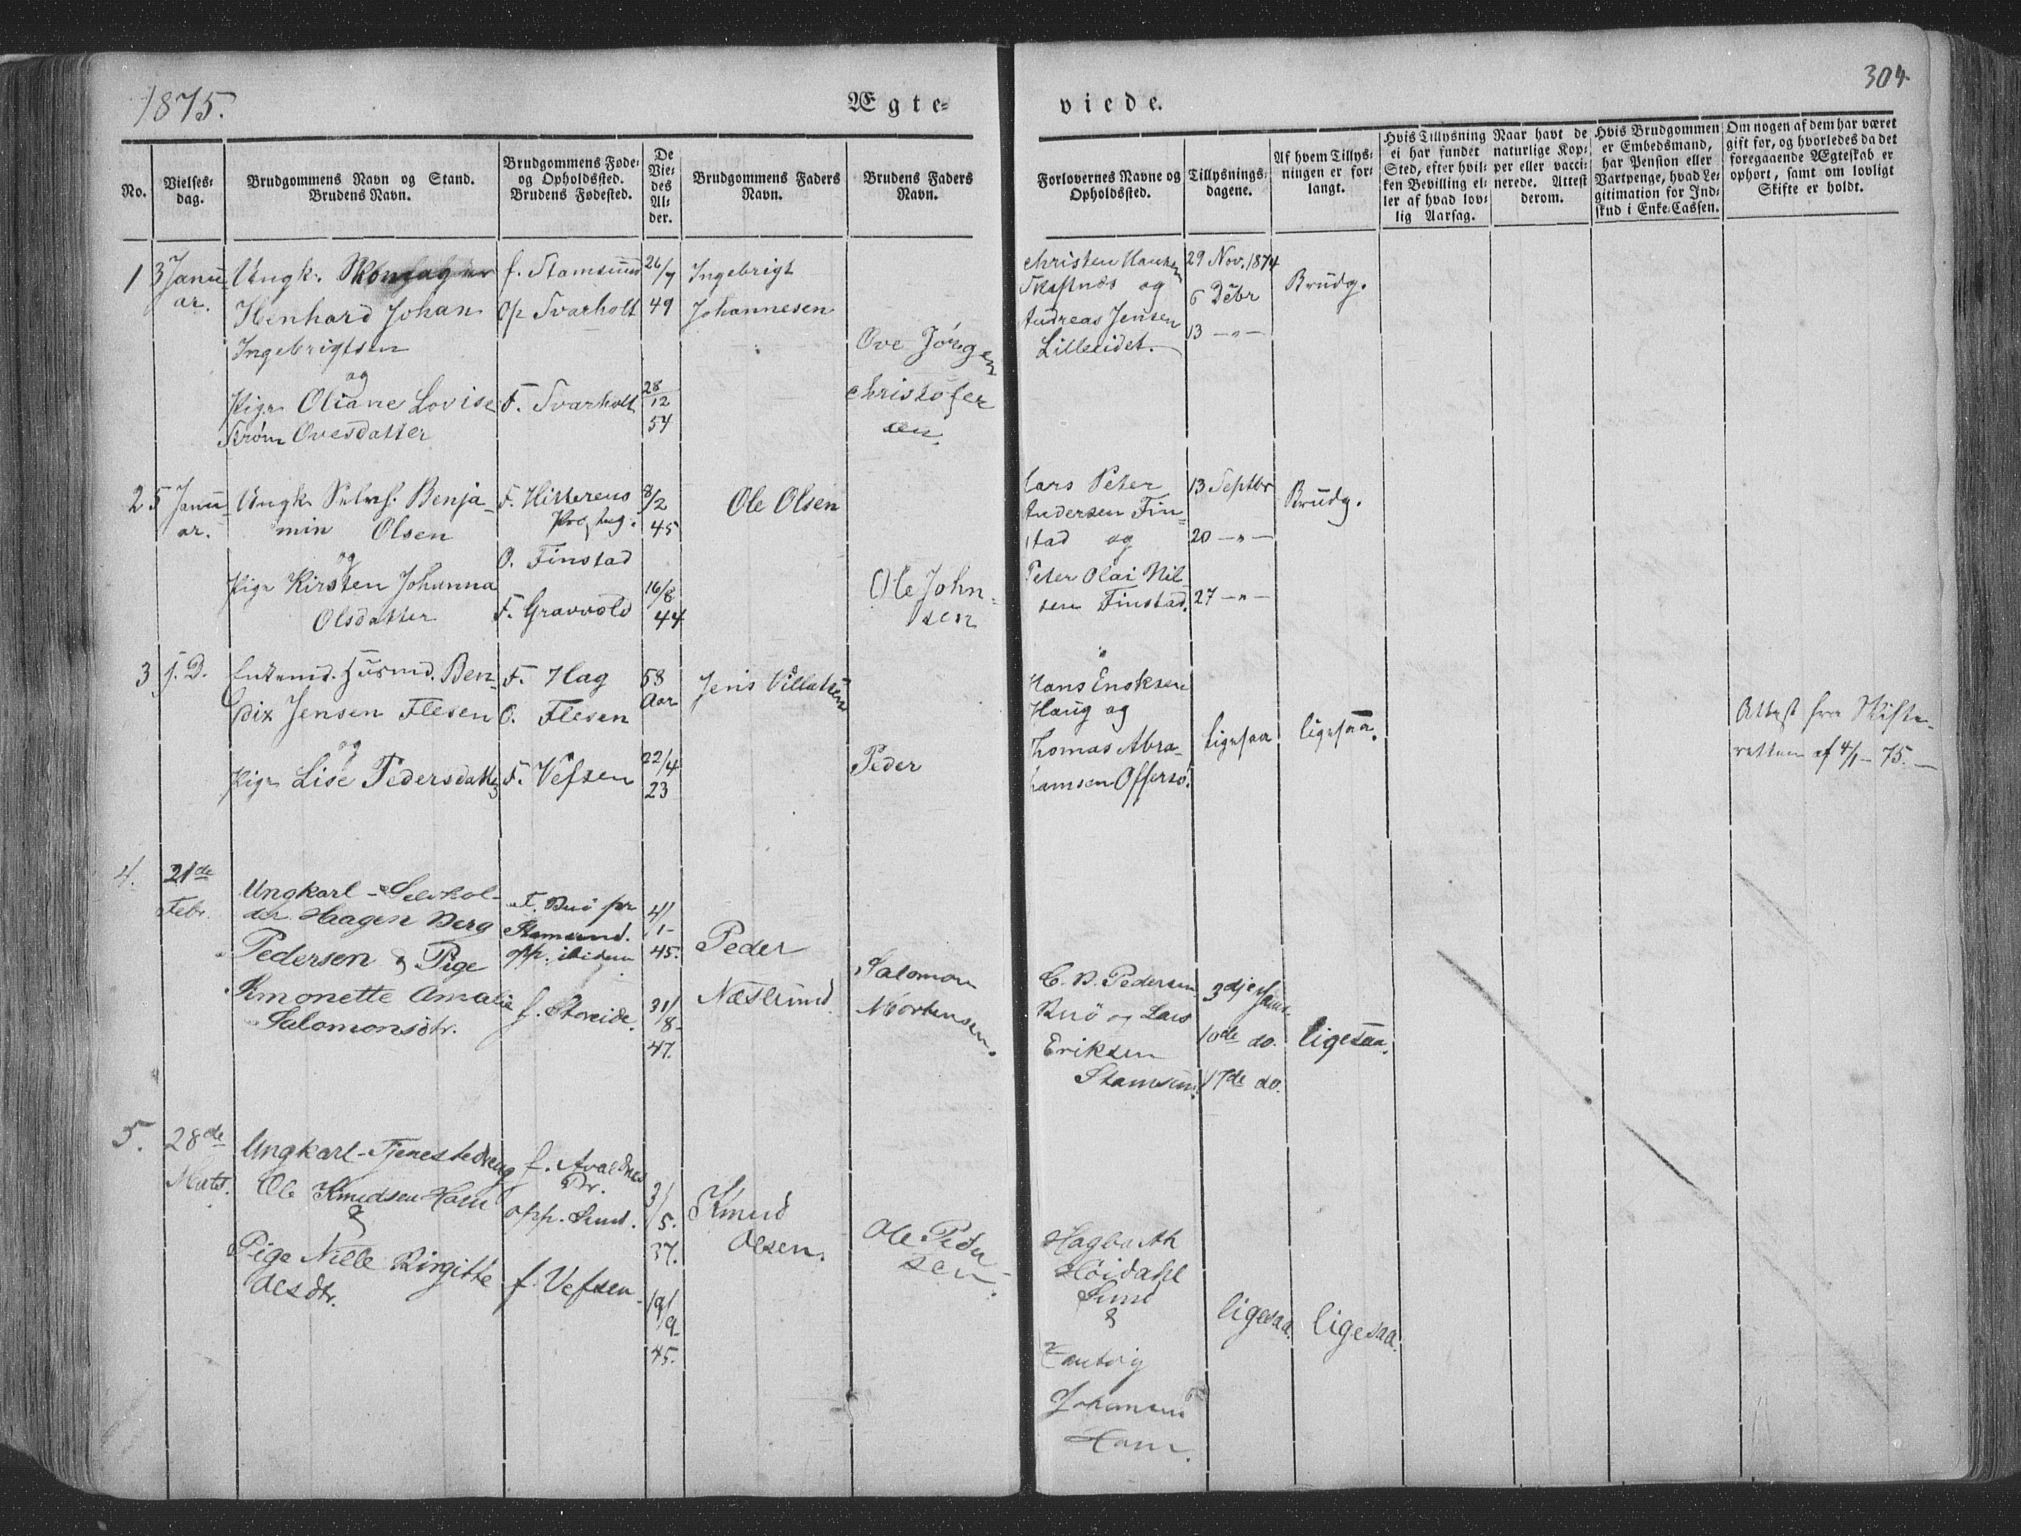 1875.
Ægte-
viede.
304
No.
Vielses-
dag.
Brudgommens Navn og Stand.
Brudens Navn.
Brudgommens Føde-
og Opholdssted.
Brudens Fødested.
De
Vie-
des
Al-
der.
Brudgommens Faders
Navn.
Brudens Faders
Navn.
Forlovernes Navne og
Opholdssted.
Tillysnings-
dagene.
Af hvem Tillys-
ningen er for-
langt.
Hvis Tillysning
ei har fundet
Sted, efter hvil-
ken Bevilling el-
ler af hvad lov-
lig Aarsag.
Naar havt de
naturlige Kop-
per eller vacci-
nerede. Attest
derom.
Hvis Brudgommen
er Embedsmand,
har Pension eller
Vartpenge, hvad Le-
gitimation for Ind-
skud i Enke-Cassen.
Om nogen af dem har været
gift for, og hvorledes da det
foregaaende Ægteskab er
ophørt, samt om lovligt
Skifte er holdt.
1
3 Janu-
ar.
Ungk.
Henhard Johan
Ingebrigtsen
og
Pige Oliane Lovise
Strøm Ovesdatter
f. Stamsund
Op Svarholt
F. Svarholt
26/7
49
28/12
54
Ingebrigt
Johannesen
Ove Jørgen
Christofer
sen.
Christen Hansen
Skaftnes og
Andreas Jensen
Lilleeidet.
29 Nov. 1874
6 Debr
13 —"—
Brudg.
2
5 Janu-
ar.
Ungk. Selvf. Benja-
min Olsen
og
Pige Kirsten Johanna
Olsdatter
F. Hitterens
Præstleg.
O. Finstad
F. Gravvold
8/2
45
16/8
44
Ole Olsen
Ole John-
sen
Lars Peter
Andersen Fin-
stad og
Peter Olai Nil-
sen Finstad.
13 Septbr
20 —"—
27 —"—
Brudg.
3
s. D.
Enkemd. Husmd. Ben-
dix Jensen Flesen
og
Pige Lise Pedersdatter
F. Hag
O. Flesen
F. Vefsen
58
Aar
22/4
23
Jens Villatsen
Peder
Hans Eriksen
Haug og
Thomas Abra-
hamsen Offersø.
ligesaa
ligesaa.
Attest fra Skifte-
retten af 4/1 - 75. —
4.
21de
Febr.
Ungkarl - Selvhol-
der Haagen Berg
Pedersen & Pige
Simonette Amalie
Salomonsdtr.
F. Buø pr
Stamsund.
opp. ibidem
f. Storeide.
4/
1-
45.
31/
8-
47.
Peder
Næstlund.
Salomon
Mortensen.
C. B. Pedersen
Buø og Lars
Eriksen
Stamsund.
3dje Janr.
10de do.
17de do.
ligesaa.
5.
28de
Marts.
Ungkarl - Tjenestedreng
Ole Knudsen Horn
&
Pige Nille Birgitte
Olsdtr.
f. Avaldnes
Pr.
opp. Sund.
f. Vefsen
3/
5.
37.
19/
9-
45.
Knud
Olsen.
Ole Peder
sen.
Hagbarth
Höidahl
Sund
&
Johansen
Horn.
ligesaa.
ligesaa.